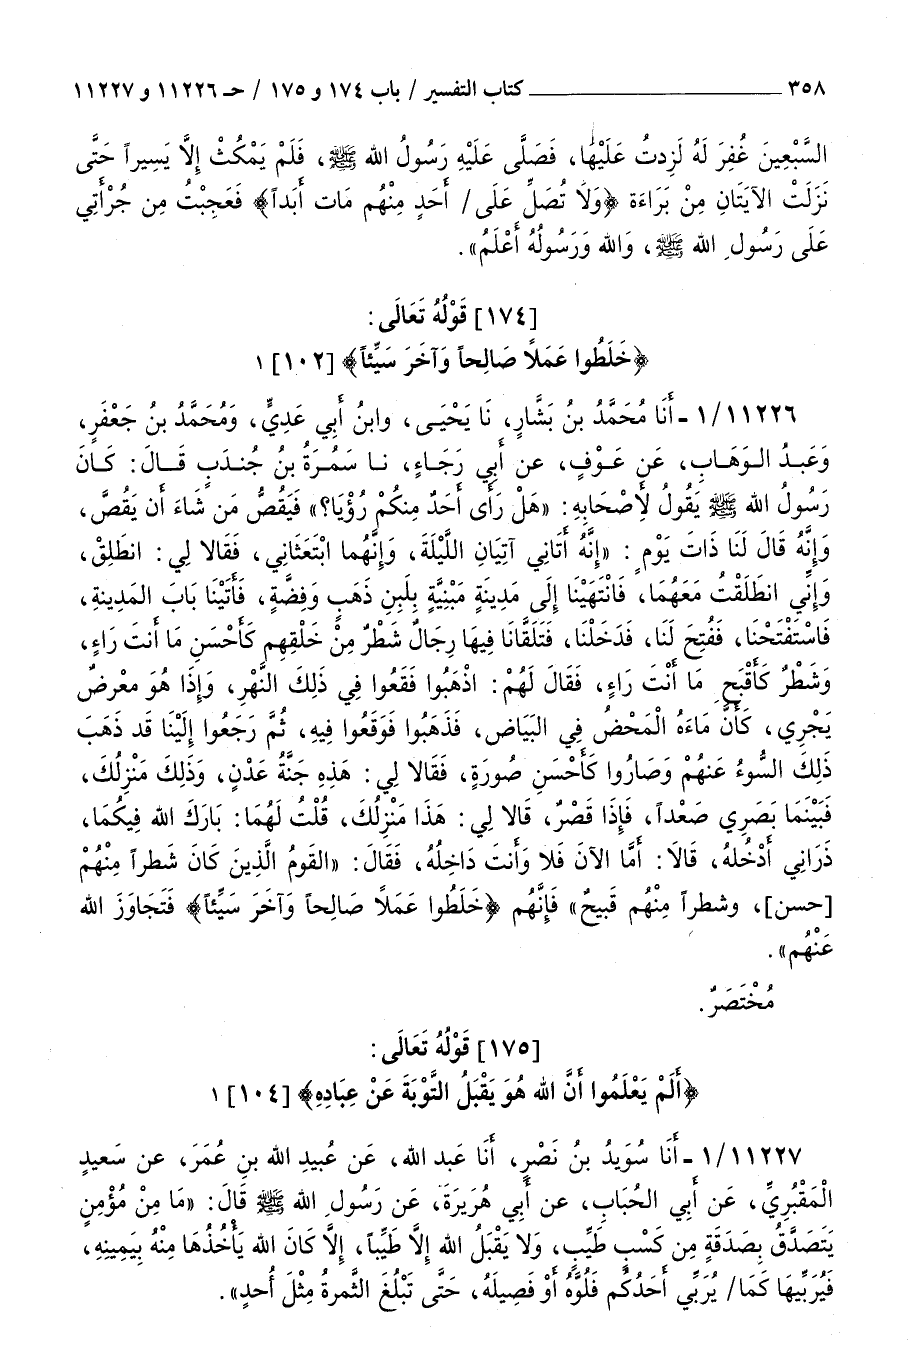 ٣٥٨ ــــــــــــــــــــــــ كتاب التفسير / باب ١٧٤ و ١٧٥ / حـ ١١٢٢٦ و ١١٢٢٧
السَّبْعِينَ غُفِرَ لَهُ لَزِدتُ عَلَيْهَا، فَصَلَّى عَلَيْهِ رَسُولُ الله ﷺ، فَلَمْ يَمْكُثْ إِلاَّ يَسِيراً حَتَّى
نَزَلَتْ الآيَتَانِ مِنْ بَرَاءَة ﴿وَلاَ تُصَلِّ عَلَى/ أَحَدٍ مِنْهُم مَات أَبَداً﴾ فَعَجِبْتُ مِن جُرْأَتِي
عَلَى رَسُولِ الله ﷺ، وَالله وَرَسُولُهُ أَعْلَمُ».
[١٧٤] قَوْلُهُ تَعَالَى:
﴿خَلَطُوا عَمَلاً صَالِحاً وَآخَرَ سَيِّئاً﴾ [١٠٢] ١
١/١١٢٢٦ ـ أَنَا مُحَمَّدُ بنُ بَشَّارٍ، نَا يَحْيَـى، وابنُ أَبي عَدِيٍّ، وَمُحَمَّدُ بنُ جَعْفَرٍ،
وَعَبـدُ الـوَهَـابِ، عَنِ عَـوْفٍ، عن أَبِي رَجَـاءٍ، نـا سَمُـرَةُ بنُ جُنـدَبٍ قَـالَ: كَـانَ
رَسُولُ الله ﷺ يَقُولُ لِأَصْحَابِهِ: «هَلْ رَأَى أَحَدٌ مِنكُمْ رُؤْيَا؟» فَيَقُصُّ مَن شَاءَ أَن يَقُصَّ،
وَإِنَّهُ قَالَ لَنَا ذَاتَ يَوْمٍ: «إِنَّهُ أَتَانِي آتِيَانِ اللَّيْلَةَ، وَإِنَّهُما ابْتَعَثَانِي، فَقَالا لِي: انطَلِقْ،
وَإِنِّي انطَلَقْتُ مَعَهُمَا، فَانْتَهَيْنَا إِلَى مَدِينَةٍ مَبْنِيَّةٍ بِلَبِنِ ذَهَبٍ وَفِضَّةٍ، فَأَتَيْنَا بَابَ المَدِينةِ،
فَاسْتَفْتَحْنَا، فَفُتِحَ لَنَا، فَدَخَلْنَا، فَتَلَقَّانَا فِيهَا رِجَالٌ شَطْرٌ مِنْ خَلْقِهِم كَأَحْسَنِ مَا أَنتَ رَاءٍ،
وَشَطْرٌ كَأَقْبَحِ مَا أَنْتَ رَاءٍ، فَقَالَ لَهُمْ: اذْهَبُوا فَقَعُوا فِي ذَلِكَ النَّهْرِ، وَإِذَا هُوَ مَعْرِضٌ
يَجْرِي، كَأَنَّ مَاءَهُ الْمَحْضُ فِي البَيَاضِ، فَذَهَبُوا فَوَقَعُوا فِيهِ، ثُمَّ رَجَعُوا إِلَيْنَا قَد ذَهَبَ
ذَلِكَ السُّوءُ عَنهُمْ وَصَارُوا كَأَحْسَنِ صُورَةٍ، فَقَالا لِي: هَذِهِ جَنَّةُ عَدْنٍ، وَذَلِكَ مَنْزِلُكَ،
فَبَيْنَمَا بَصَرِي صَعْداً، فَإِذَا قَصْرٌ، قَالا لِي: هَذَا مَنْزِلُكَ، قُلْتُ لَهُمَا: بَارَكَ الله فِيكُمَا،
ذَرَانِي أَدْخُلهُ، قَالاَ: أَمَّا الآنَ فَلا وَأَنتَ دَاخِلُهُ، فَقَالَ: «القَومُ الَّذِينَ كَانَ شَطراً مِنْهُمْ
[حسن]، وشطراً مِنْهُم قَبيحٌ» فَإِنَّهُم ﴿خَلَطُوا عَمَلاً صَالِحاً وَآخَرَ سَيِّئاً﴾ فَتَجَاوَزَ الله
عَنْهُم».
مُخْتَصَرٌ.
[١٧٥] قَوْلُهُ تَعَالَى:
﴿أَلَمْ يَعْلَمُوا أَنَّ الله هُوَ يَقْبَلُ التَّوْبَةَ عَنْ عِبَادِهِ﴾ [١٠٤] ١
١/١١٢٢٧ ـ أَنَا سُوَيدُ بنُ نَصْرٍ، أَنَا عَبد الله، عَن عُبيدِ الله بنِ عُمَرَ، عن سَعيدٍ
الْمَقْبُرِيِّ، عَن أَبي الحُبَابِ، عن أَبي هُرَيرَةَ، عَن رَسُولِ الله ﷺ قَالَ: «مَا مِنْ مُؤْمِنٍ
يَتَصَدَّقُ بِصَدَقَةٍ مِن كَسْبٍ طَيِّبٍ، وَلا يَقْبَلُ الله إِلاَّ طَيِّباً، إِلاَّ كَانَ الله يَأْخُذُهَا مِنْهُ بِيَمِينِهِ،
فَيُرَبِّيهَا كَمَا/ يُرَبِّي أَحَدُكُم فَلُوَّهُ أَوْ فَصِيلَهُ، حَتَّى تَبْلُغَ الثَّمرةُ مِثْلَ أُحدٍ».